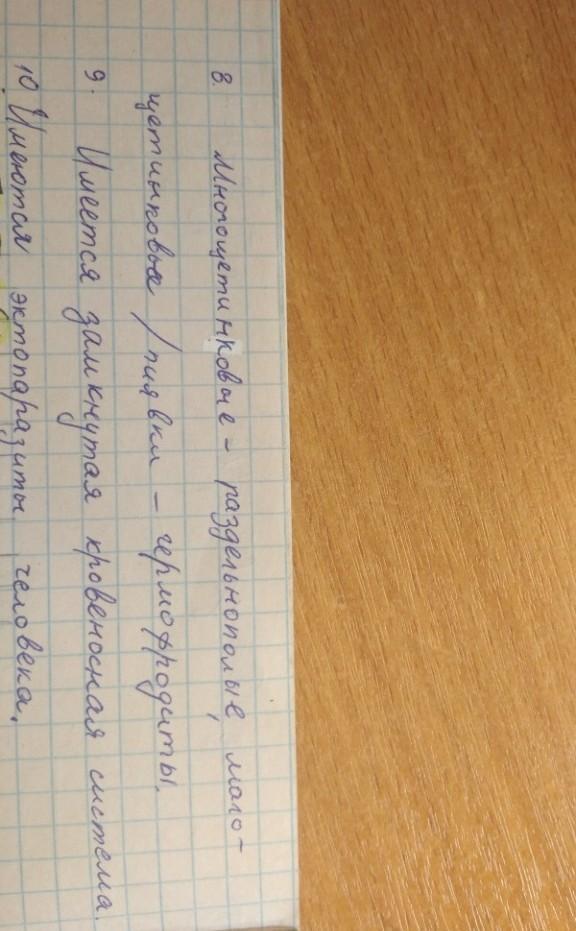 8. Многощетинковые - раздельнополые, мало-
щетинковые / пиявки - гермофродиты.
9. Имеется замкнутая кровеносная система.
10 Имеются эктопаразиты человека.